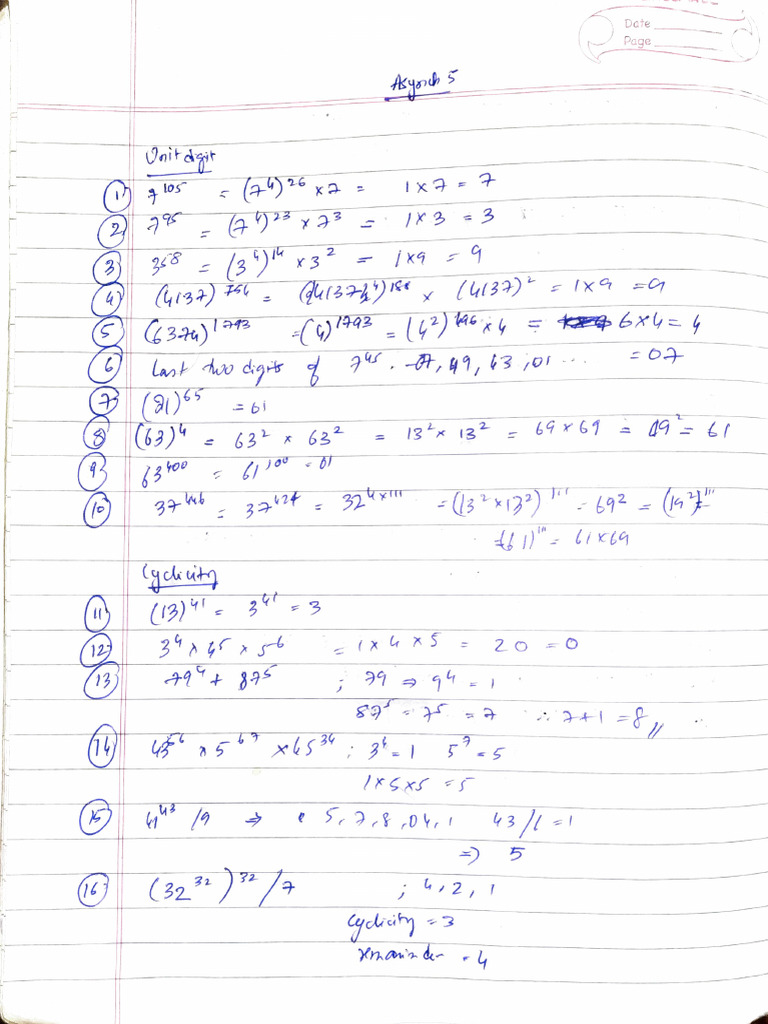 Date
Page
Asynch 5
Unit digit
① 7^105 = (7^4)^26 × 7 = 1 × 7 = 7
② 7^95 = (7^4)^23 × 7^3 = 1 × 3 = 3
③ 3^58 = (3^4)^14 × 3^2 = 1 × 9 = 9
④ (4137)^754 = × (4137)^2 = 1 × 9 = 9
⑤ (6374)^1793 = (4)^1793 = (4^2)^896 × 4 = 6 × 4 = 4
⑥ Last two digits of 7^45 07, 49, 43, 01 ... = 07
⑦ (21)^65 = 61
⑧ (63)^4 = 63^2 × 63^2 = 13^2 × 13^2 = 69 × 69 = 19^2 = 61
⑨ 63^400 = 61^100 = 01
⑩ = = 32^4×111 = (13^2 × 13^2)^111 = 69^2 = (19^2)^111 =
(61)^111 = 61 × 69
Cyclicity
⑪ (13)^41 = 3^41 = 3
⑫ 3^4 × 4^5 × 5^6 = 1 × 4 × 5 = 20 = 0
⑬ 79^4 + 87^5 ; 79 ⇒ 9^4 = 1
87^5 = 7^5 = 7 ∴ 7 + 1 = 8 //
⑭ 43^56 × 5^67 × 45^34 ; 3^4 = 1 5^7 = 5
1 × 5 × 5 = 5
⑮ 41^43 / 9 ⇒ 5, 7, 8, 04, 1 43 / 6 = 1
⇒ 5
⑯ (32^32)^32 / 7 ; 4, 2, 1
Cyclicity = 3
remainder = 4